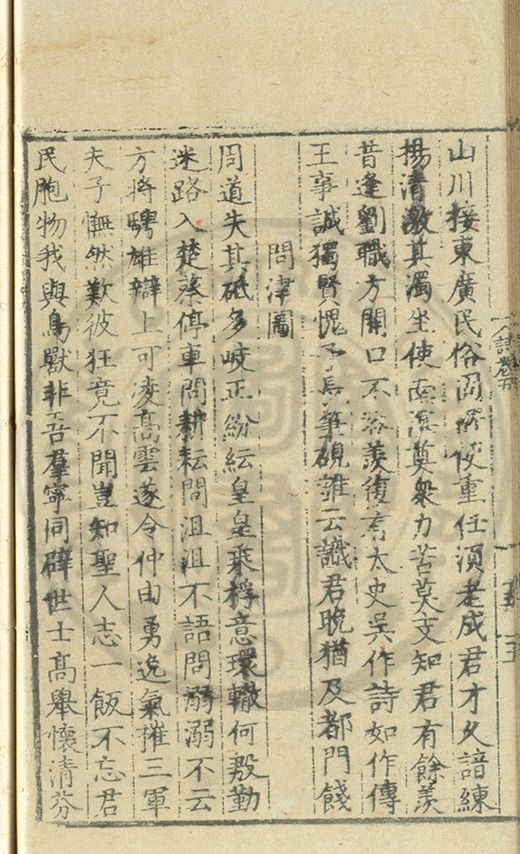 山川接東廣民俗閩浙使重任須老成君才久諳練
揚清激其濁坐使南溟奠衆力苦莫支知君有餘羨
昔逢劉職方開口不容羡復有太史吳作詩如作傳
王事誠獨賢愧予焉筆硯雖云讖君晚猶及都門餞
問津圖
周道失其砥多岐正紛紜皇皇乘桴意環轍何殷勤
迷路入楚蔡停車問耕耘問沮沮不語問溺溺不云
方將騁雄辯上可凌高雲遂令仲由勇逸氣摧三軍
夫子憮然歎彼狂竟不聞豈知聖人志一飯不忘君
民胞物我與鳥獸非吾羣寧同辟世士高舉懷清芬